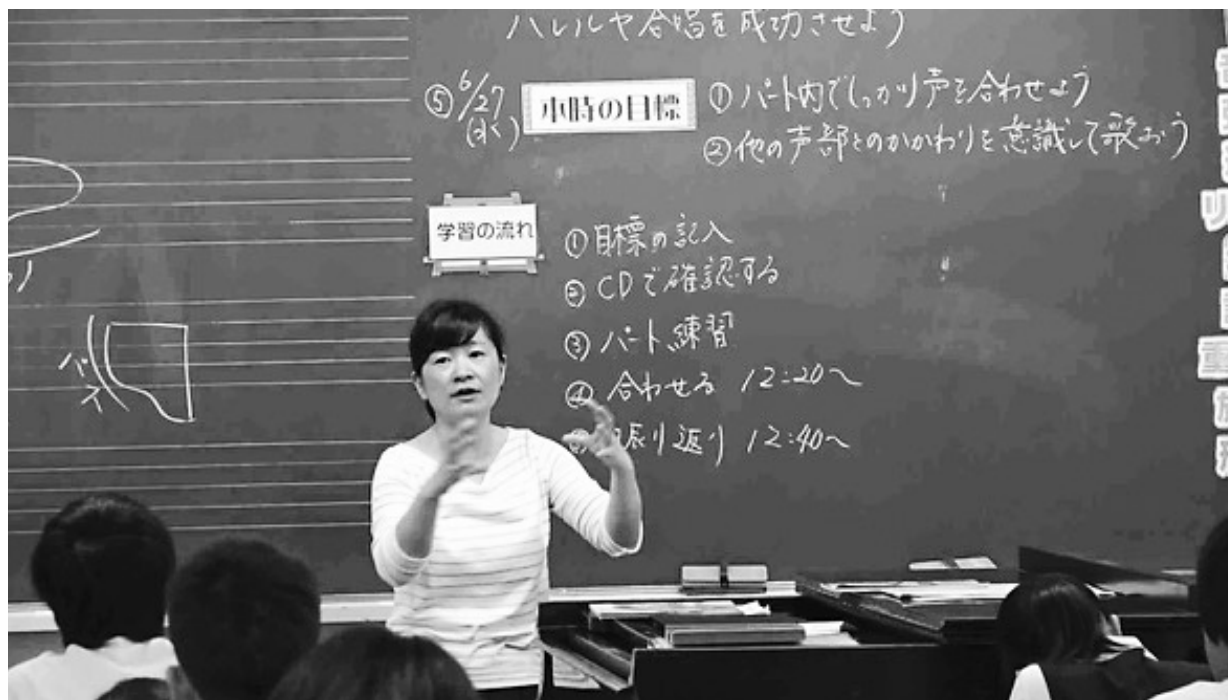 ハレルヤ合唱を成功させよう
⑤ 6/27 (水) 本時の目標 ① パート内でしっかり声を合わせよう
② 他の声部とのかかわりを意識して歌おう
学習の流れ
① 目標の記入
② CDで確認する
③ パート練習
④ 合わせる 12:20〜
振り返り 12:40〜
バス